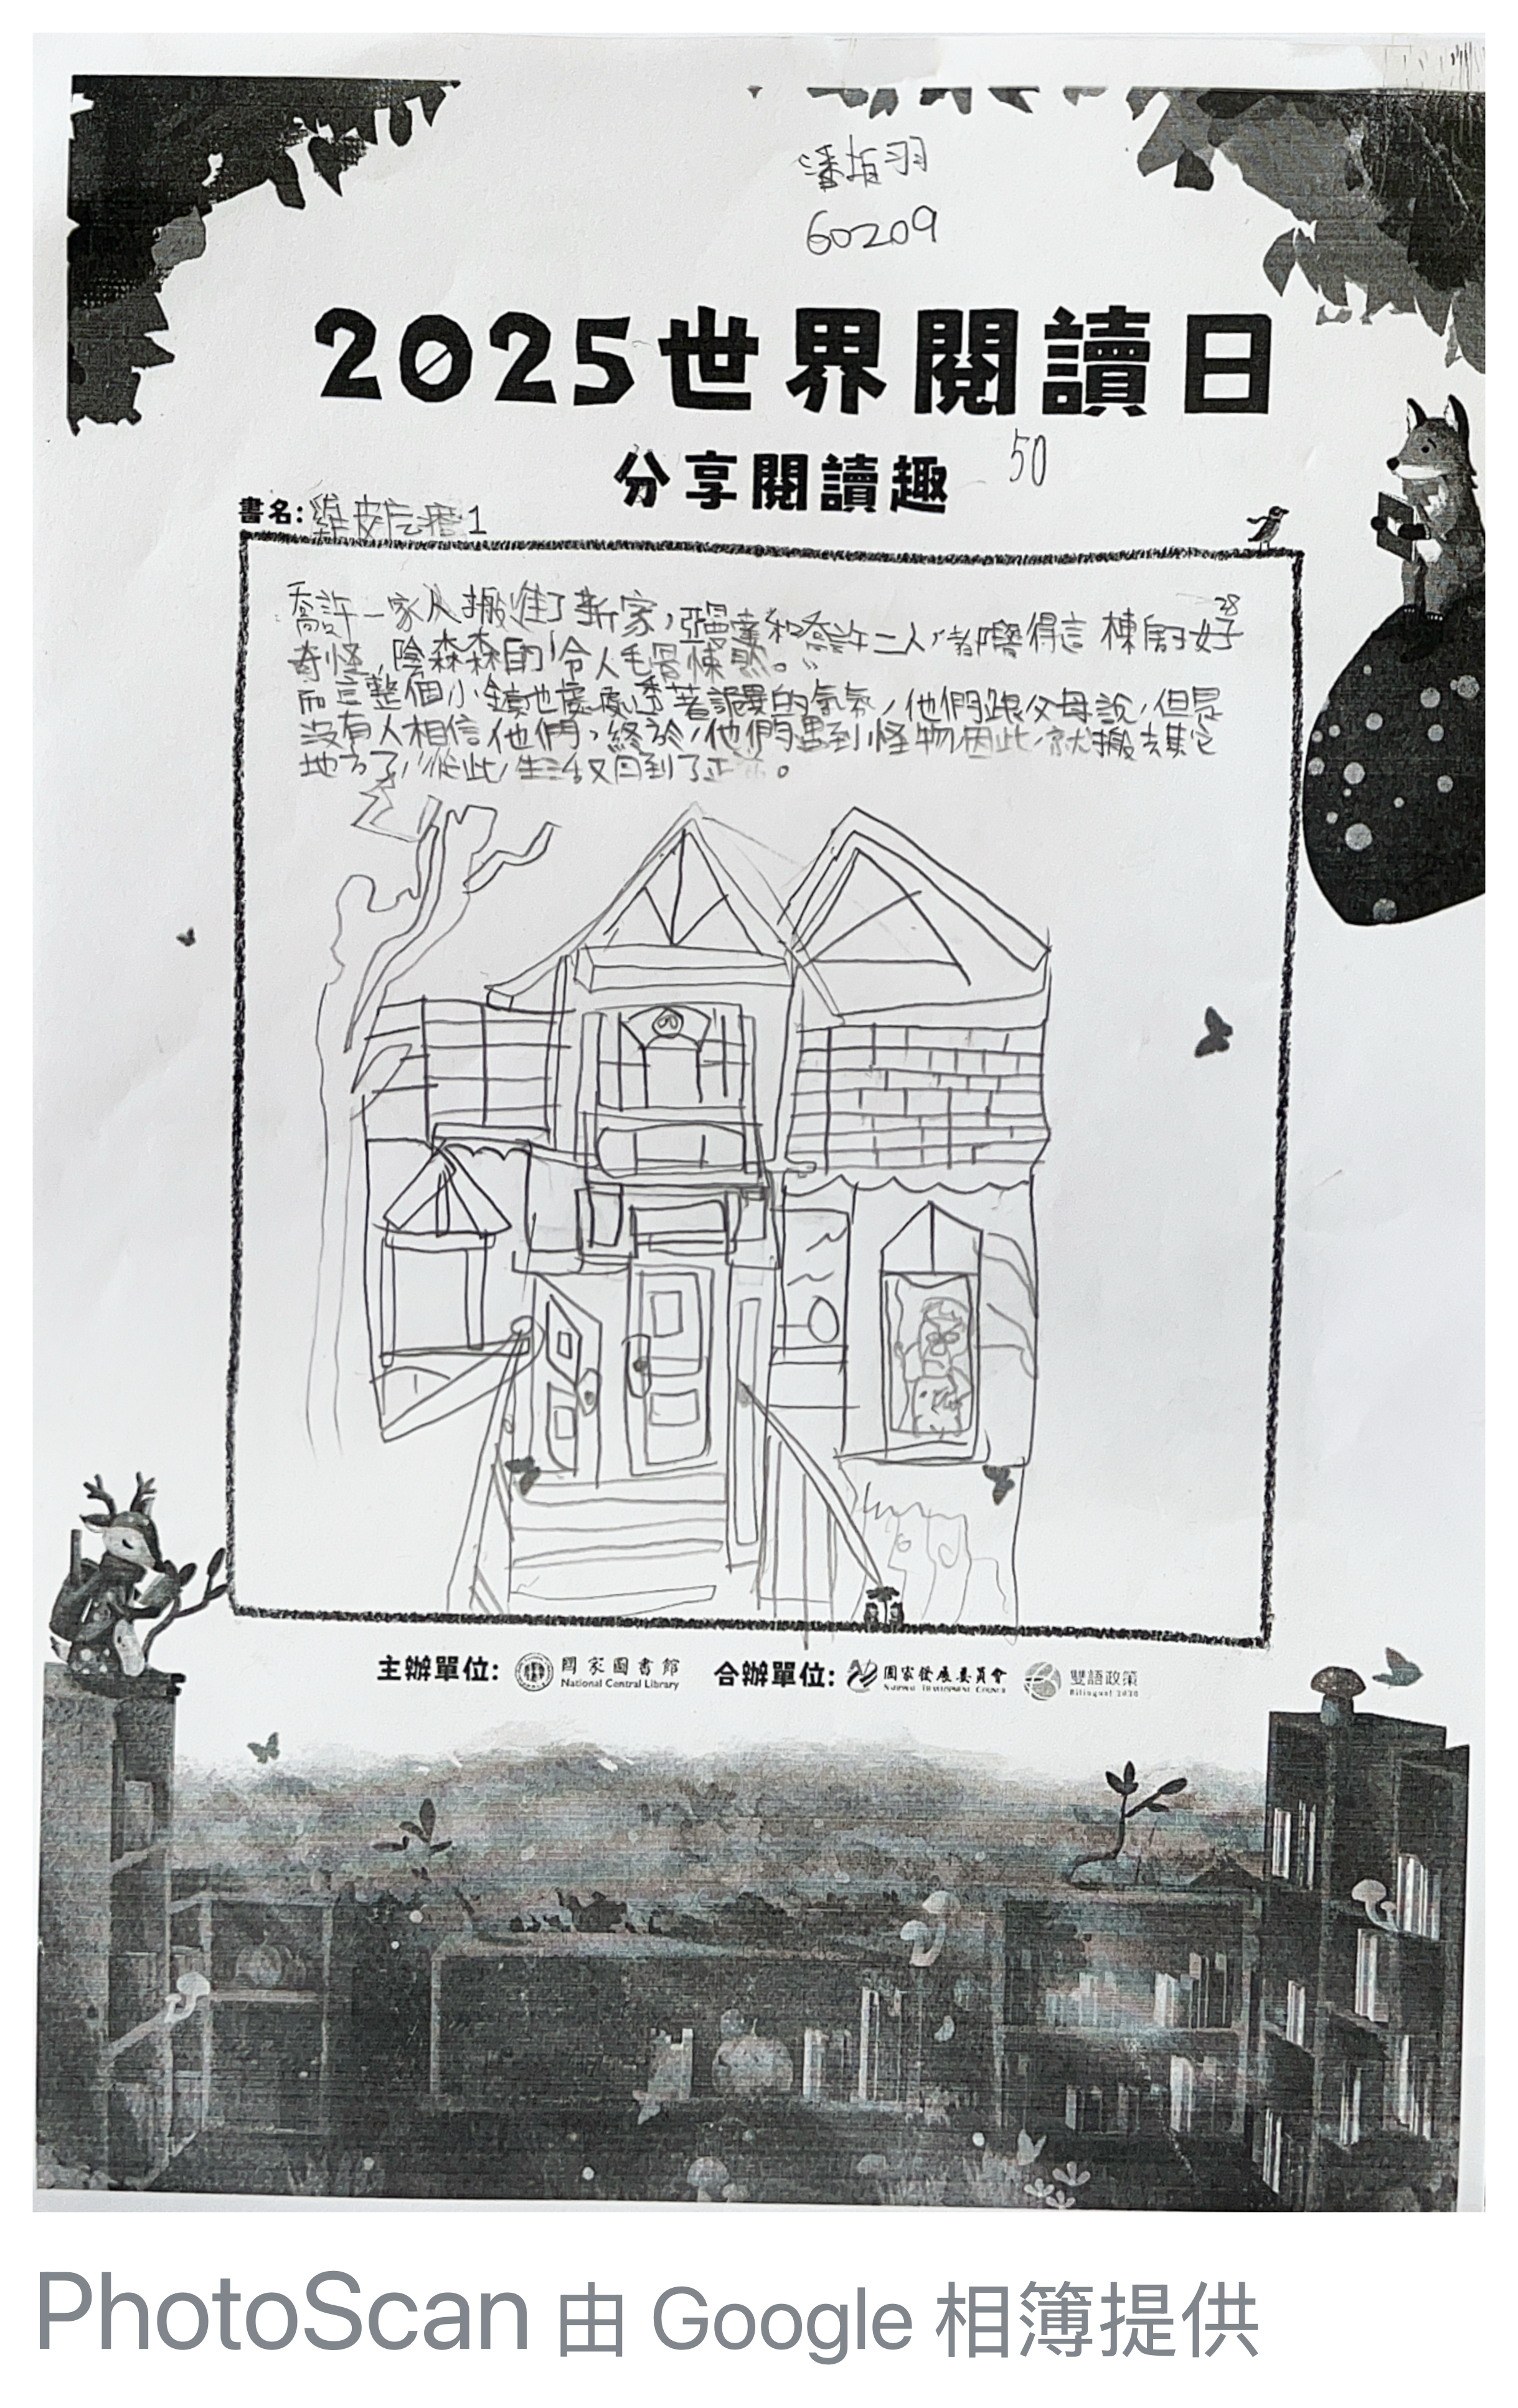 潘垣羽
60209
2025世界閱讀日
分享閱讀趣 50
書名:雞皮疙瘩1
28
喬許一家人搬進了新家,亞曼達和喬許二人,都覺得這棟房子好
奇怪,陰森森的,令人毛骨悚然。
而這整個小鎮也處處透著詭異的氣氛,他們跟父母說,但是
沒有人相信他們,終於,他們遇到怪物因此,就搬去其它
地方了,從此,生活又回到了正
主辦單位: 國家圖書館 National Central Library 合辦單位: 國家發展委員會 NATIONAL DEVELOPMENT COUNCIL 雙語政策 Bilingual 2030
PhotoScan 由 Google 相簿提供